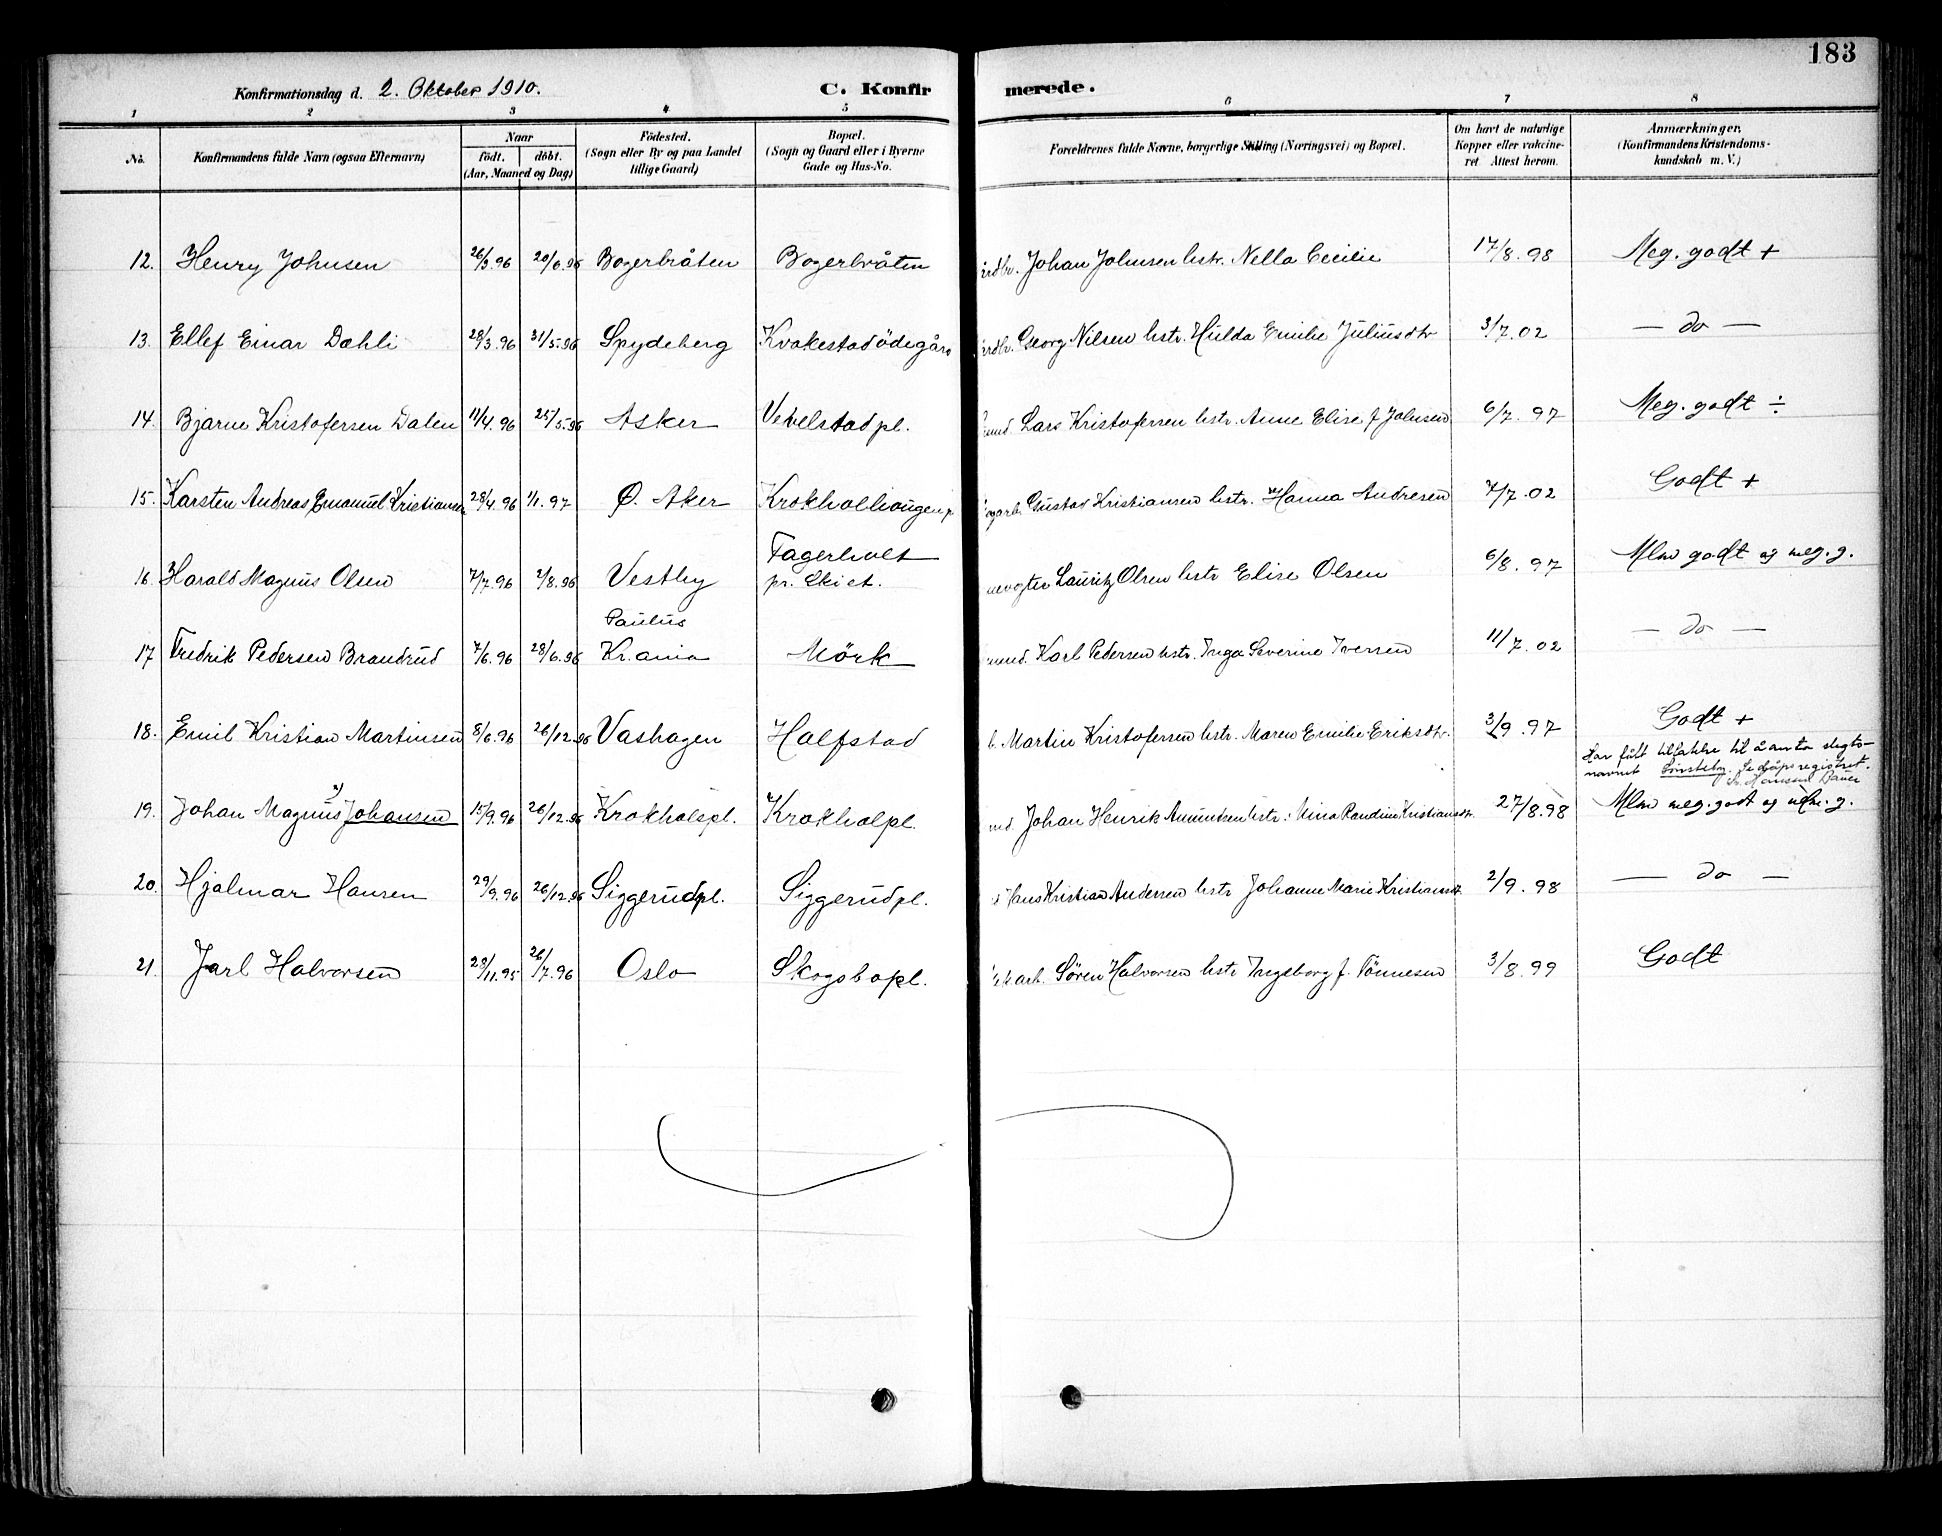 183
Konfirmationsdag d. 2. Oktober 1910.
C. Konfir merede.
1 2 3 4 5 6 7 8
No.
Konfirmandens fulde Navn (ogsaa Efternavn)
Naar
födt. döbt.
(Aar, Maaned og Dag)
Födested.
(Sogn eller By og paa Landet
tillige Gaard)
Bopæl.
(Sogn og Gaard eller i Byerne
Gade og Hus-No.
Forældrenes fulde Navne, borgerlige Stilling (Næringsvei) og Bopæl.
Om havt de naturlige
Kopper eller vakcine-
ret. Attest herom.
Anmærkninger.
(Konfirmandens Kristendoms-
kundskab m. V.)
12. Henry Johnsen 26/3.96 20/6.96 Bogerbråten Bogerbråten Johan Johnsen hstr. Nella Cecilie 17/8.98 Meg. godt +
13. Ellef Einar Dæhli 28/3.96 31/5.96 Spydeberg Kvakestadödegård Georg Nilsen hstr. Hulda Emilie Juliusdtr 3/7.02 — do —
14. Bjarne Kristofersen Dalen 11/4.96 25/5.96 Asker Vevelstadpl. Lars Kristofersen hstr. Anne Elise f Johnsen 6/7.97 Meg. godt ÷
15. Karsten Andreas Emanuel Kristiansen 28/4.96 1/1.97 Ø. Aker Gustav Kristiansen hstr. Hanna Andresen 7/7.02 Godt +
16. Harald Magnus Olsen 7/7.96 2/8.96 Vestby Fagerholt
pr. Ski st. Lauritz Olsen hstr Elise Olsen 6/8.97 Mlm godt og meg. g.
17 Fredrik Pedersen Brandrud 7/6.96 28/6.96 Paulus
Kr.ania Mörk Karl Pedersen hstr. Inga Severine Iversen 11/7.02 — do —
18. Emil Kristian Martinsen 8/6.96 26/12.96 Vashagen Halfstad Martin Kristofersen hstr. Maren Emilie Eriksdtr. 3/9.97 Godt +
Har fått tillatelse til å anta slegts-
navnet Se dåpsregistret.
19. Johan Magnus Johansen 15/9.96 26/12.96 Krokholspl. Krokholpl. Johan Henrik Amundsen hstr. Mina Randine Kristiansdtr. 27/8.98 Mlm meg. godt og g.
20. Hjalmar Hansen 29/9.96 26/12.96 Siggerudpl. Siggerudpl. Hans Kristian Andersen hstr Johanne Marie Kristiansdt 2/9.98 — do —
21. Jarl Halvorsen 28/11.95 26/7.96 Oslo Skogsbopl. Sören Halvorsen hstr Ingeborg f. Tönnesen 3/8.99 Godt